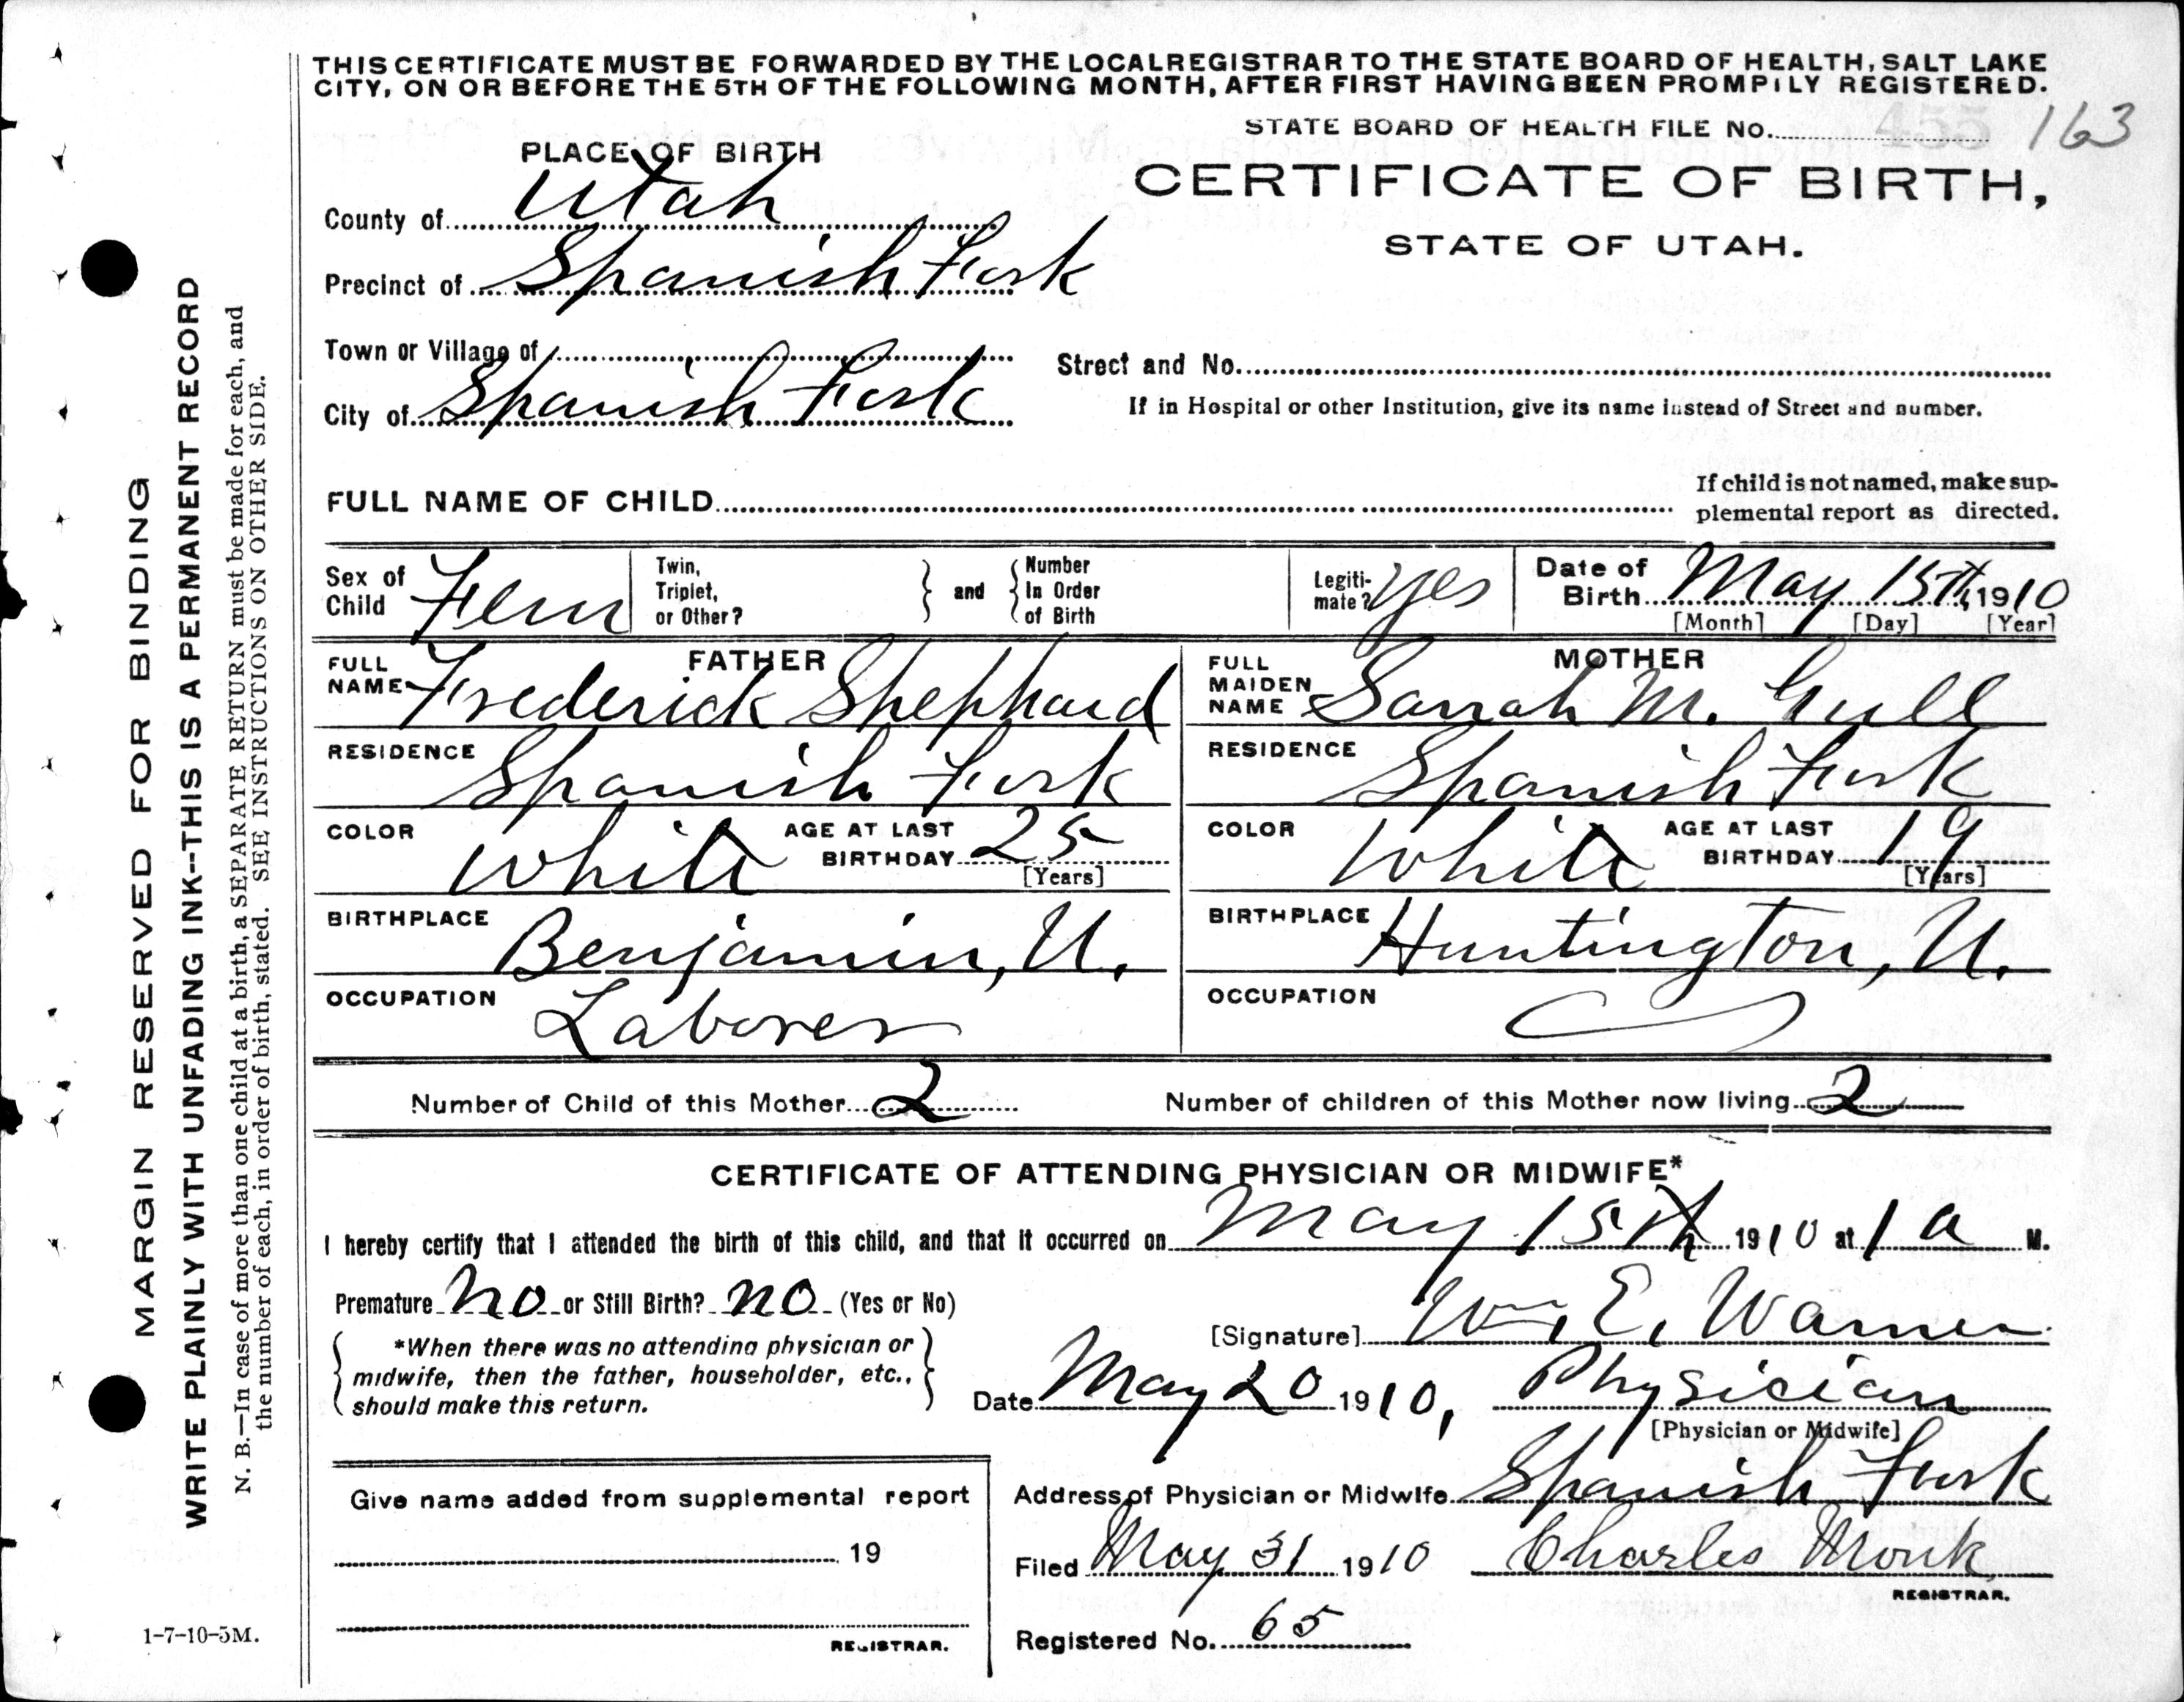 THIS CERTIFICATE MUST BE FORWARDED BY THE LOCAL REGISTRAR TO THE STATE BOARD OF HEALTH, SALT LAKE
CITY, ON OR BEFORE THE 5TH OF THE FOLLOWING MONTH, AFTER FIRST HAVING BEEN PROMPILY REGISTERED.
STATE BOARD OF HEALTH FILE NO. 455 163
PLACE OF BIRTH
CERTIFICATE OF BIRTH,
STATE OF UTAH.
County of Utah
Precinct of Spanish Fork
Town or Village of
Street and No.
City of Spanish Fork
If in Hospital or other Institution, give its name instead of Street and number.
FULL NAME OF CHILD
If child is not named, make sup-
plemental report as directed.
Sex of Child Fem
Twin, Triplet, or Other?
and
Number In Order of Birth
Legiti-mate? Yes
Date of Birth May 15th, 1910
[Month] [Day] [Year]
FATHER
FULL NAME Frederick Shephard
RESIDENCE Spanish Fork
COLOR White AGE AT LAST BIRTHDAY 25
[Years]
BIRTHPLACE Benjamin, U.
OCCUPATION Laborer
MOTHER
FULL MAIDEN NAME Sarrah M. Gull
RESIDENCE Spanish Fork
COLOR White AGE AT LAST BIRTHDAY 19
[Years]
BIRTHPLACE Huntington, U.
OCCUPATION
Number of Child of this Mother 2 Number of children of this Mother now living 2
CERTIFICATE OF ATTENDING PHYSICIAN OR MIDWIFE*
I hereby certify that I attended the birth of this child, and that it occurred on May 15th 1910 at 1 a M.
Premature no or Still Birth? no (Yes or No)
[Signature] Wm. E. Warner
*When there was no attending physician or
midwife, then the father, householder, etc.,
should make this return.
Date May 20 1910, Physician
[Physician or Midwife]
Address of Physician or Midwife Spanish Fork
Give name added from supplemental report
19
REGISTRAR.
Filed May 31 1910 Charles Monk
REGISTRAR.
Registered No. 65
MARGIN RESERVED FOR BINDING
WRITE PLAINLY WITH UNFADING INK--THIS IS A PERMANENT RECORD
N. B.—In case of more than one child at a birth, a SEPARATE RETURN must be made for each, and
the number of each, in order of birth, stated. SEE INSTRUCTIONS ON OTHER SIDE.
1-7-10-5M.